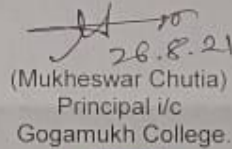 26.8.21
(Mukheswar Chutia)
Principal i/c
Gogamukh College.